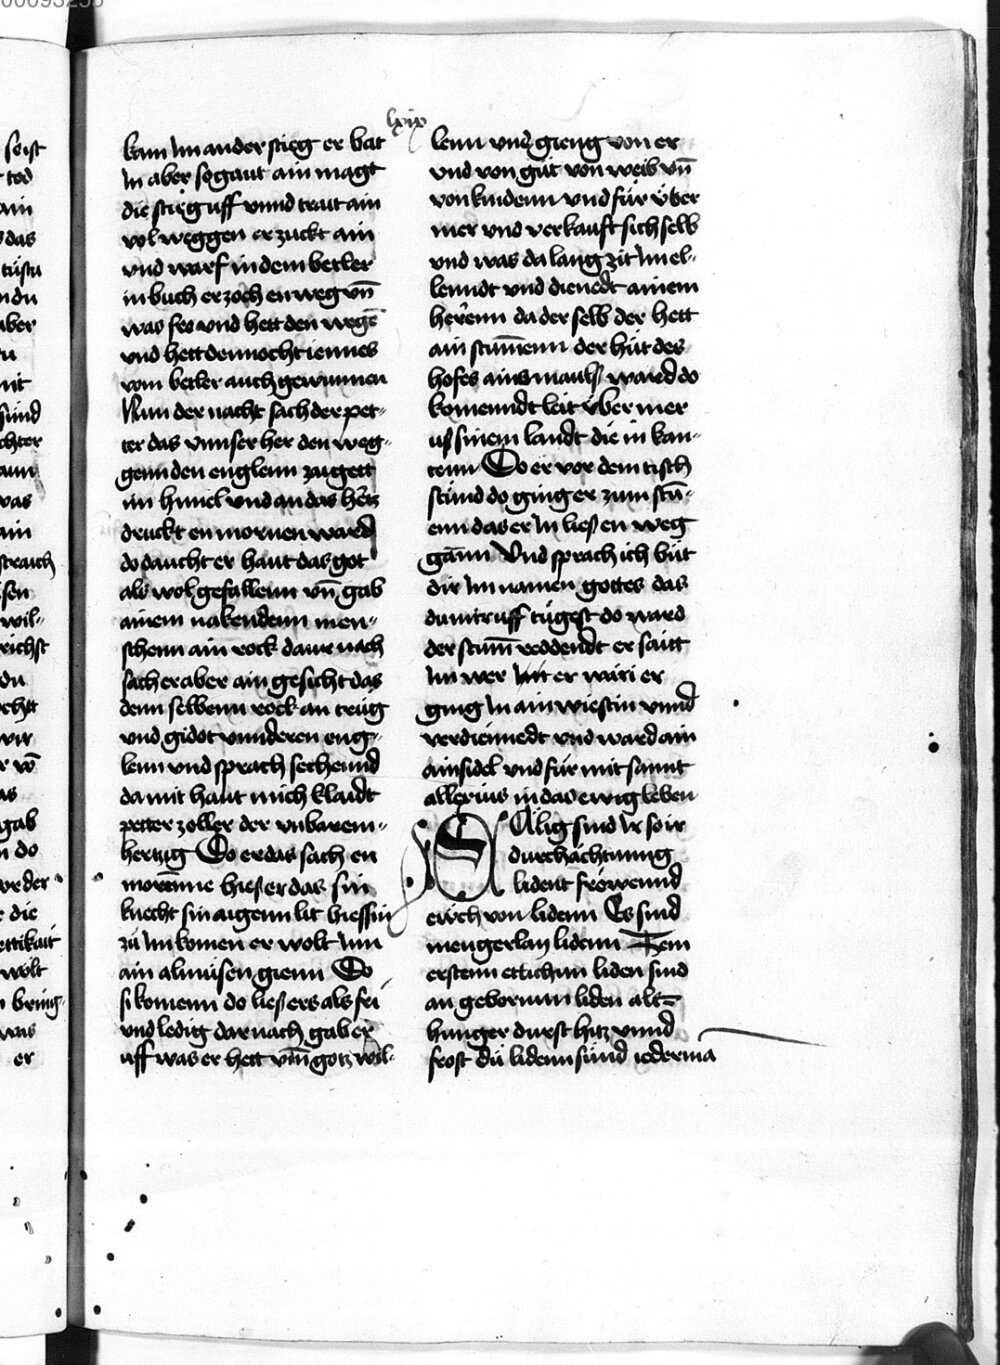 lxix
kam Im ander stieg er bat
In aber so gaut ain magt
die stieg uff vnnd trait ain
vol weggen er zuckt ain
vnd warf in dem betler
in buch er zoch en weg vn̄
was fro vnd hett den wegē
vnd hett dennocht iennes
vom betler auch gewunnen
Nun der nacht sach der pet-
ter das vnnser her den weg-
genn den englenn zaigett
im himel vnd an das hertz
druckt en mornen ward
do daucht er haut das got
als wol gefallenn vn̄ gab
ainem nakendenn men-
schenn ain rock dar nach
sach er aber ain gesicht das
denn selbenn rock an trüg
vnd gidot vnnderen eng-
lenn vnd sprach sechennd
da mit haut mich klaidt
petter zoller der vnbarem-
hertzig Do er das sach en
mornne hieß er das sin
knecht sin aigenn lit hiessin
zü Im komen er wolt Inn
ain almüsen gienn Do
si komenn do ließ ers als fri
vnd ledig dar nach gab er
uff was er hett vm̄ gotz wil-
lenn vnd gieng von er
vnd von güt von weib vn̄
von kindenn vnd für v̈ber
mer vnd verkauft sich selb
vnd was da lang zit Im el-
lenndt vnd dienedt ainem
herenn da der selb der hett
ain stum̄enn der hüt des
hofes ains mauls ward do
komenndt leit v̈ber mer
uß sinem landt die in kan-
tenn Do er vor dem tisch
stünd do ging er zum stū-
enn das er In ließ en weg
gānn Vnd sprach ich büt
dir Im namen gottes das
du mir uff tügest do ward
der stum̄ reddendt er saitt
Im wer Mit er wäri er
ging In ain wiestin vnnd
verdiennedt vnd ward ain
ainsidel vnd für mit sannt
allexius in das ewig leben
Sälig sind Ir so ir
durchächtnung
lident fröwennd
eẅch von lidenn Es sind
mengerlay lidenn Item
erstenn ettich im liden sind
an gebornnn liden als
hunger durst hitz vnnd
frost dü lidenn sünd iedermā